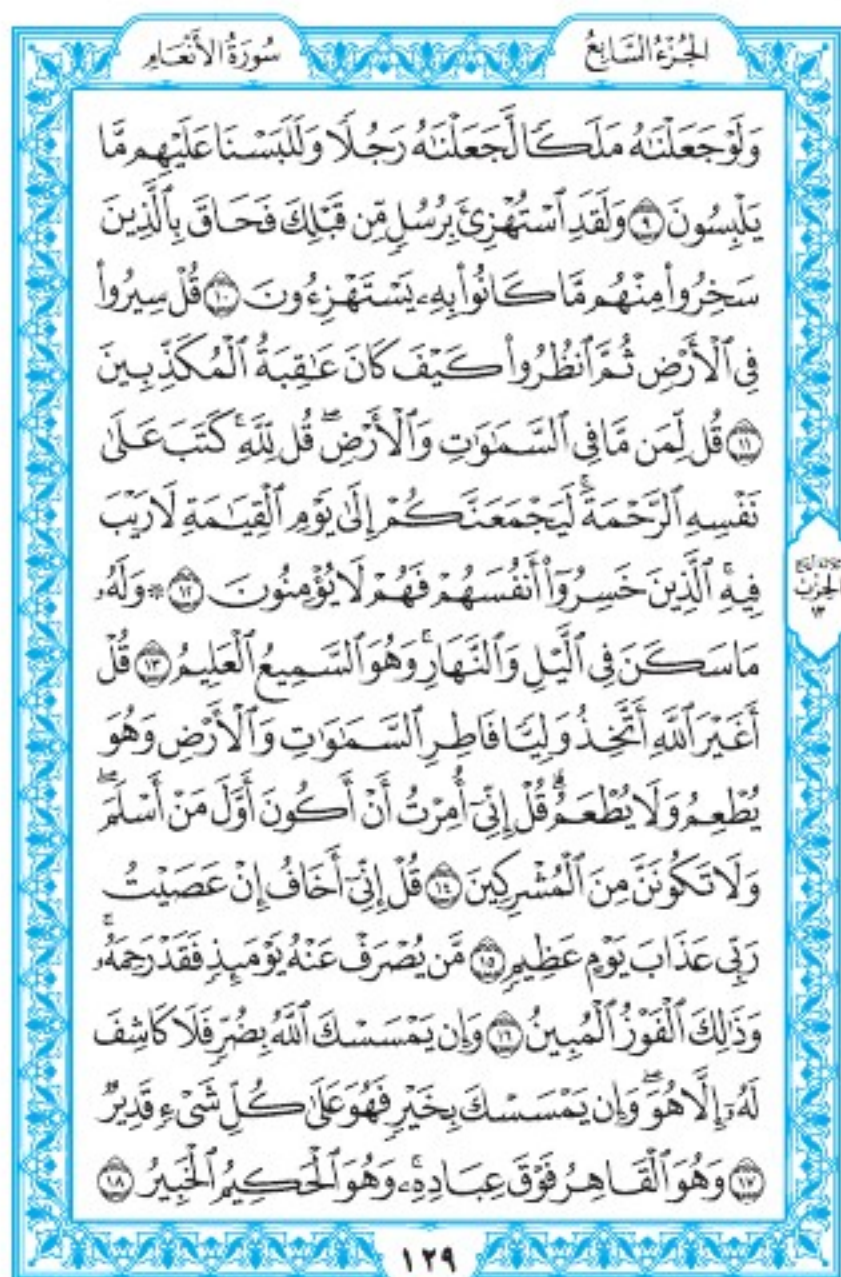 الجُزْءُ السَّابِعُ
سُورَةُ الأَنْعَامِ
وَلَوْ جَعَلْنَٰهُ مَلَكًا لَّجَعَلْنَٰهُ رَجُلًا وَلَلَبَسْنَا عَلَيْهِم مَّا
يَلْبِسُونَ ۝٩ وَلَقَدِ ٱسْتُهْزِئَ بِرُسُلٍ مِّن قَبْلِكَ فَحَاقَ بِٱلَّذِينَ
سَخِرُوا۟ مِنْهُم مَّا كَانُوا۟ بِهِۦ يَسْتَهْزِءُونَ ۝١٠ قُلْ سِيرُوا۟
فِى ٱلْأَرْضِ ثُمَّ ٱنظُرُوا۟ كَيْفَ كَانَ عَٰقِبَةُ ٱلْمُكَذِّبِينَ
۝١١ قُل لِّمَن مَّا فِى ٱلسَّمَٰوَٰتِ وَٱلْأَرْضِۖ قُل لِّلَّهِۚ كَتَبَ عَلَىٰ
نَفْسِهِ ٱلرَّحْمَةَۚ لَيَجْمَعَنَّكُمْ إِلَىٰ يَوْمِ ٱلْقِيَٰمَةِ لَا رَيْبَ
فِيهِۚ ٱلَّذِينَ خَسِرُوٓا۟ أَنفُسَهُمْ فَهُمْ لَا يُؤْمِنُونَ ۝١٢ ۞ وَلَهُۥ
مَا سَكَنَ فِى ٱلَّيْلِ وَٱلنَّهَارِۚ وَهُوَ ٱلسَّمِيعُ ٱلْعَلِيمُ ۝١٣ قُلْ
أَغَيْرَ ٱللَّهِ أَتَّخِذُ وَلِيًّا فَاطِرِ ٱلسَّمَٰوَٰتِ وَٱلْأَرْضِ وَهُوَ
يُطْعِمُ وَلَا يُطْعَمُۗ قُلْ إِنِّىٓ أُمِرْتُ أَنْ أَكُونَ أَوَّلَ مَنْ أَسْلَمَۖ
وَلَا تَكُونَنَّ مِنَ ٱلْمُشْرِكِينَ ۝١٤ قُلْ إِنِّىٓ أَخَافُ إِنْ عَصَيْتُ
رَبِّى عَذَابَ يَوْمٍ عَظِيمٍ ۝١٥ مَّن يُصْرَفْ عَنْهُ يَوْمَئِذٍ فَقَدْ رَحِمَهُۥۚ
وَذَٰلِكَ ٱلْفَوْزُ ٱلْمُبِينُ ۝١٦ وَإِن يَمْسَسْكَ ٱللَّهُ بِضُرٍّ فَلَا كَاشِفَ
لَهُۥٓ إِلَّا هُوَۖ وَإِن يَمْسَسْكَ بِخَيْرٍ فَهُوَ عَلَىٰ كُلِّ شَىْءٍ قَدِيرٌ
۝١٧ وَهُوَ ٱلْقَاهِرُ فَوْقَ عِبَادِهِۦۚ وَهُوَ ٱلْحَكِيمُ ٱلْخَبِيرُ ۝١٨
الحِزْب
١٣
١٢٩